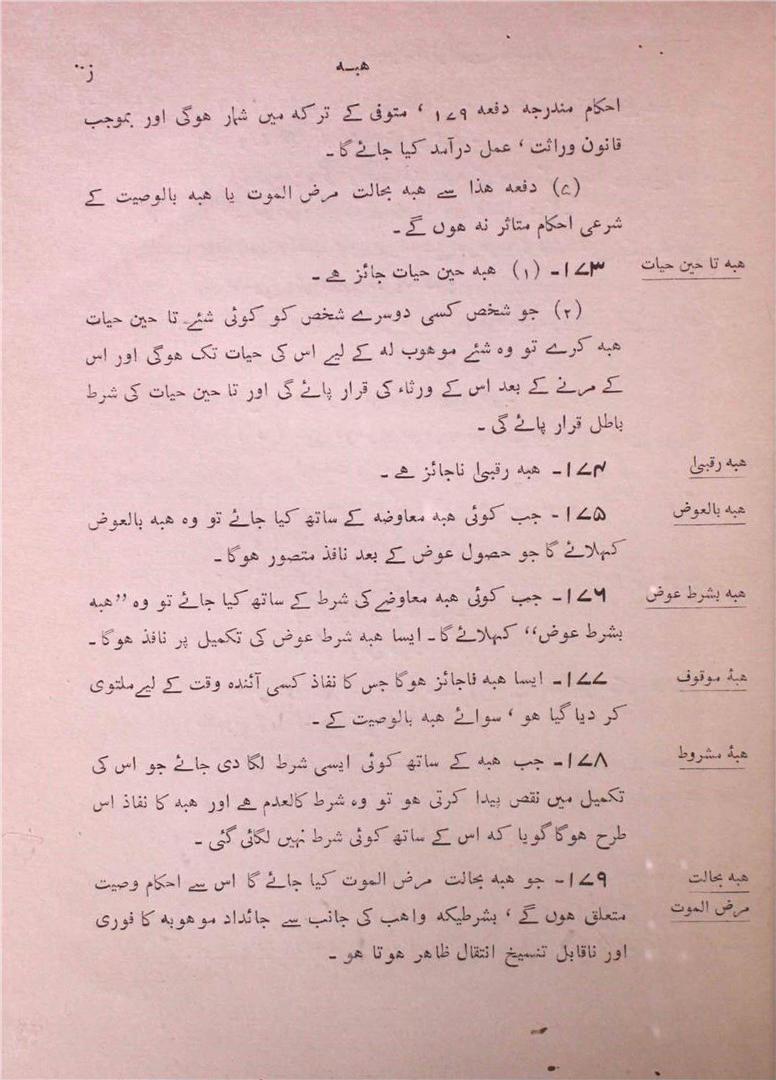 هبہ
ز
احکام مندرجہ دفعہ ۱۷۹ ، متوفی کے ترکہ میں شمار ہوگی اور بموجب
قانون وراثت ، عمل درآمد کیا جائے گا ۔
دفعہ ھذا سے ھبہ بحالت مرض الموت یا ھبہ بالوصیت کے
شرعی احکام متاثر نہ ہوں گے ۔
ھبہ تا حین حیات
۱۷۳۔ (۱) ھبہ حین حیات جائز ہے ۔
(۲) جو شخص کسی دوسرے شخص کو کوئی شئے تا حین حیات
ھبہ کرے تو وہ شئے موھوب لہ کے لیے اس کی حیات تک ہوگی اور اس
کے مرنے کے بعد اس کے ورثاء کی قرار پائے گی اور تا حین حیات کی شرط
باطل قرار پائے گی ۔
ھبہ رقبیٰ
۱۷۴۔ ھبہ رقبیٰ ناجائز ہے ۔
ھبہ بالعوض
۱۷۵۔ جب کوئی ھبہ معاوضہ کے ساتھ کیا جائے تو وہ ھبہ بالعوض
کہلائے گا جو حصول عوض کے بعد نافذ متصور ہوگا ۔
ھبہ بشرط عوض
۱۷۶۔ جب کوئی ھبہ معاوضے کی شرط کے ساتھ کیا جائے تو وہ ’’ھبہ
بشرط عوض‘‘ کہلائے گا ۔ ایسا ھبہ شرط عوض کی تکمیل پر نافذ ہوگا ۔
ھبۂ موقوف
۱۷۷۔ ایسا ھبہ ناجائز ہوگا جس کا نفاذ کسی آئندہ وقت کے لیے ملتوی
کر دیا گیا ہو ، سوائے ھبہ بالوصیت کے ۔
ھبۂ مشروط
۱۷۸۔ جب ھبہ کے ساتھ کوئی ایسی شرط لگا دی جائے جو اس کی
تکمیل میں نقص پیدا کرتی ہو تو وہ شرط کالعدم ہے اور ھبہ کا نفاذ اس
طرح ہوگا گویا کہ اس کے ساتھ کوئی شرط نہیں لگائی گئی ۔
ھبہ بحالت
مرض الموت
۱۷۹۔ جو ھبہ بحالت مرض الموت کیا جائے گا اس سے احکام وصیت
متعلق ہوں گے ، بشرطیکہ واھب کی جانب سے جائداد موھوبہ کا فوری
اور ناقابل تنسیخ انتقال ظاہر ہوتا ہو ۔